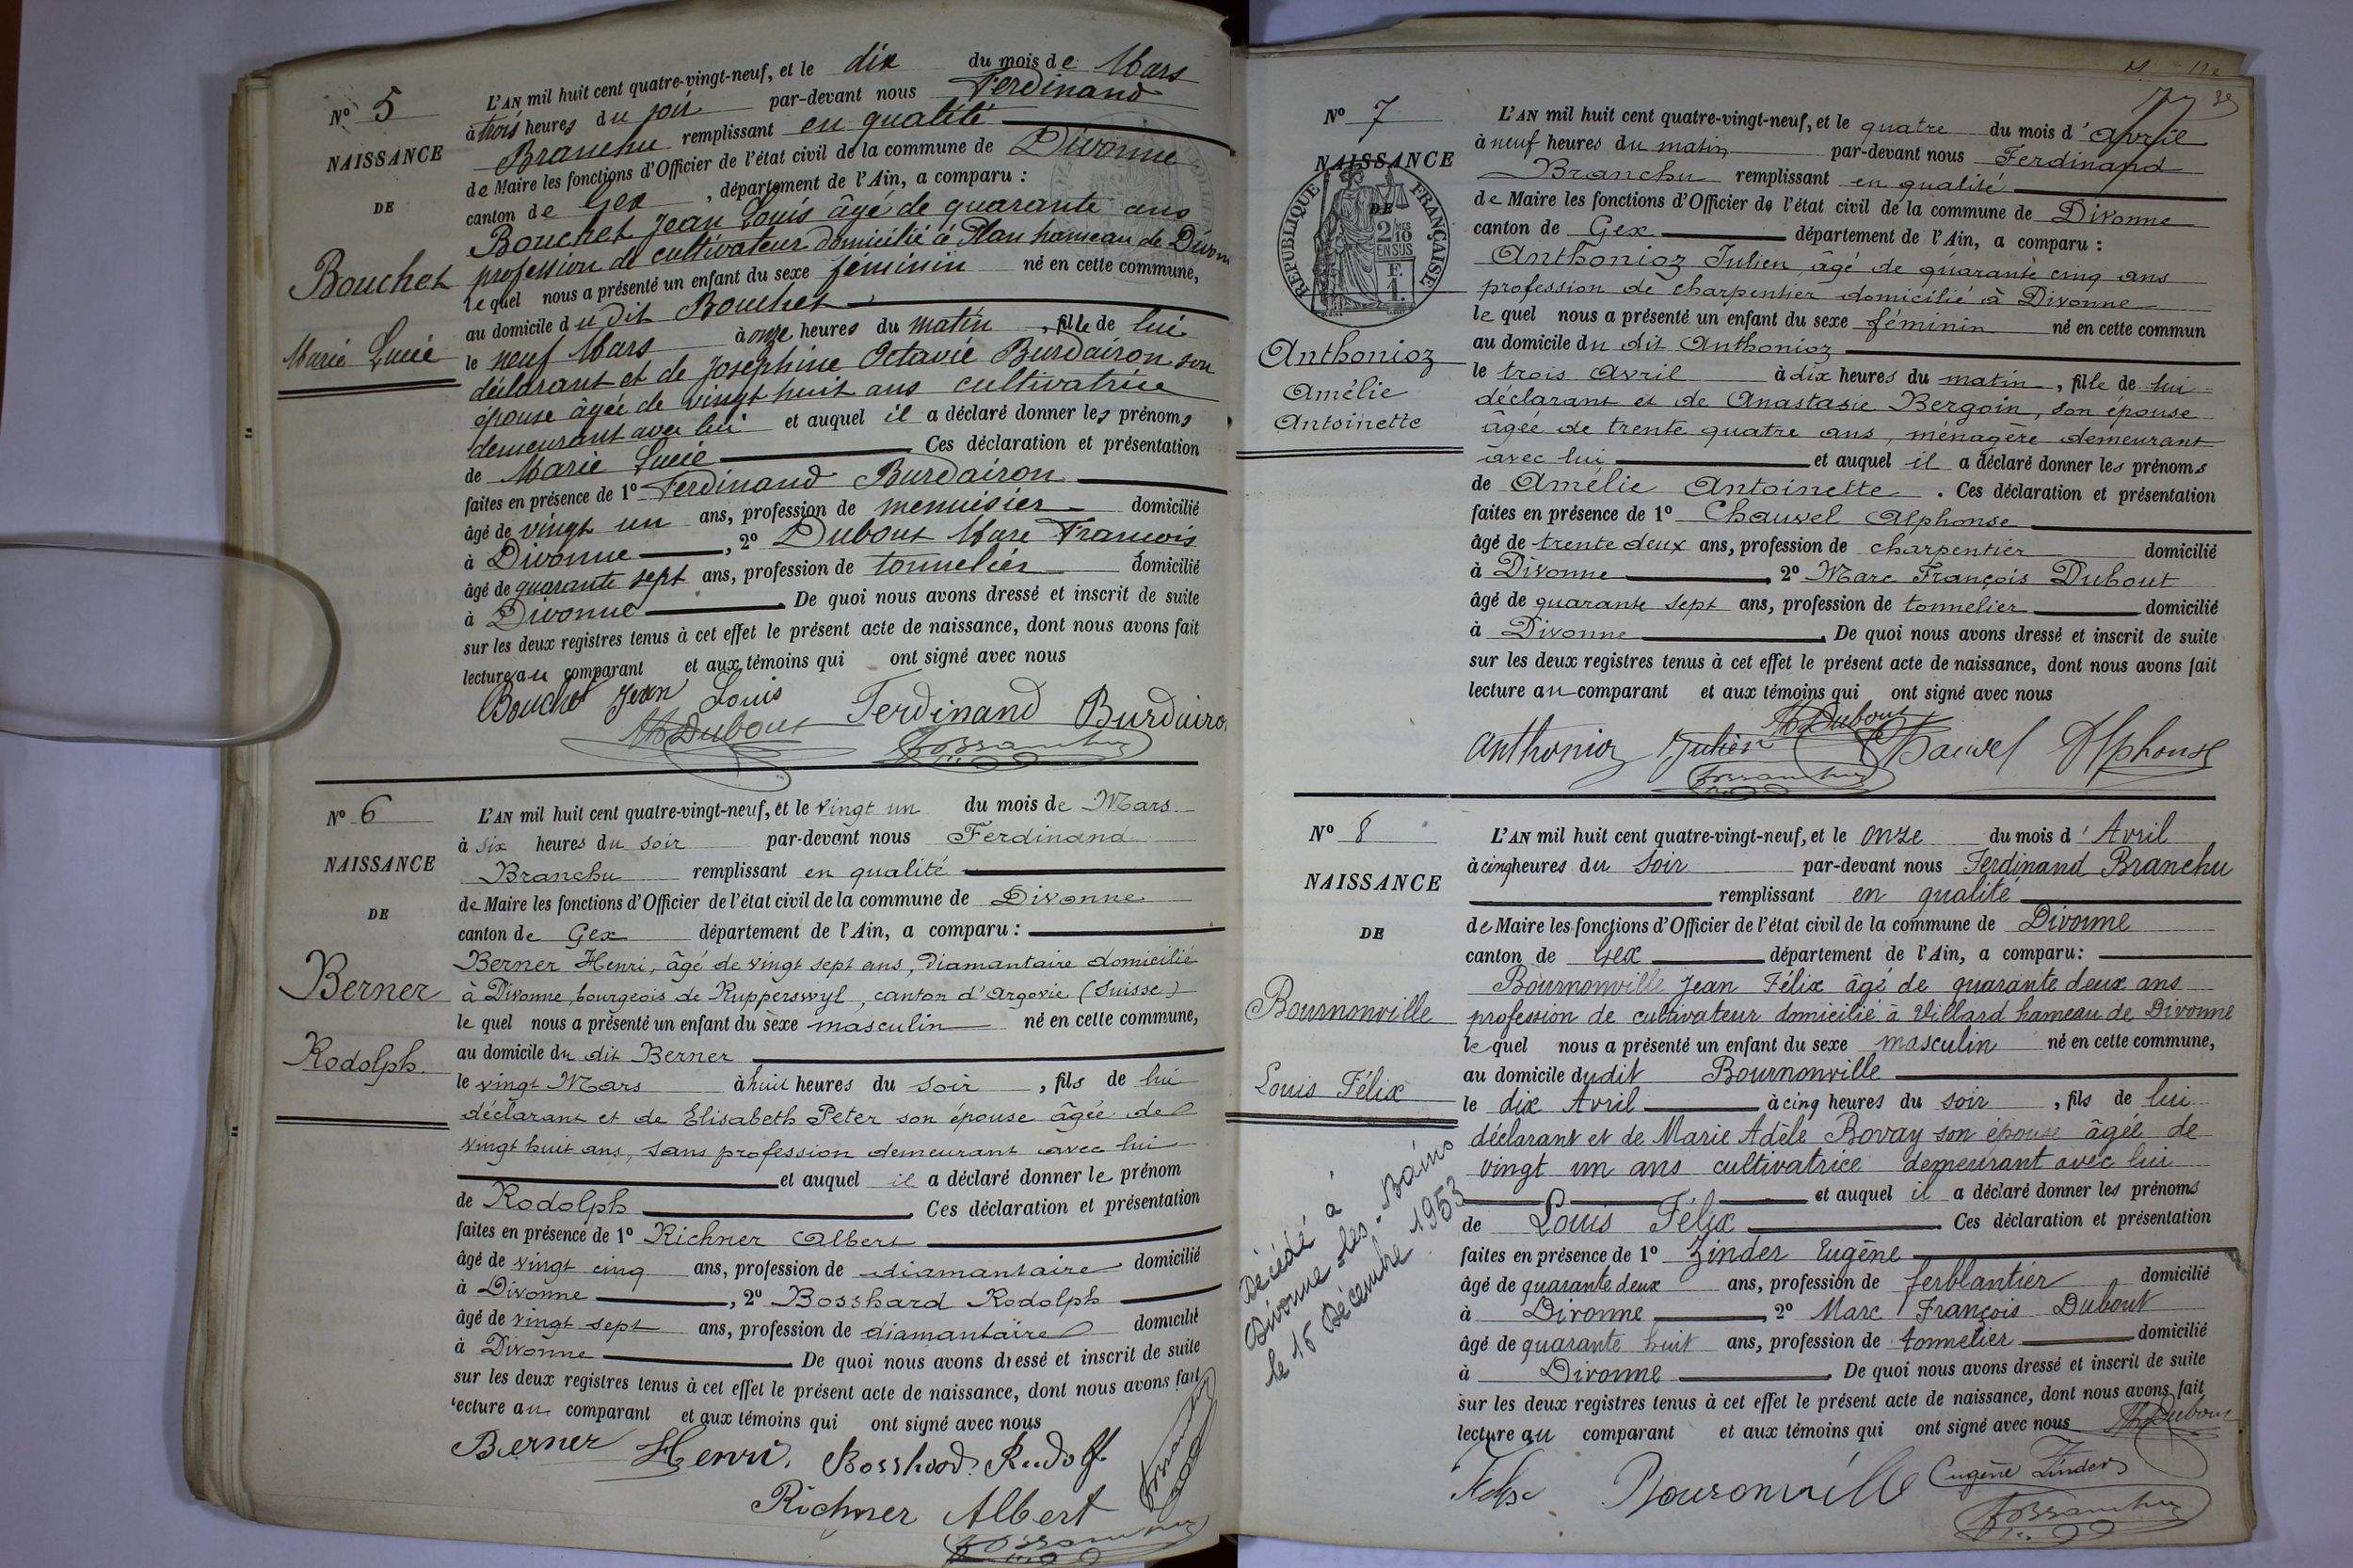 Nº 5
NAISSANCE
DE
Bouchet
Marie Lucie
L'AN mil huit cent quatre-vingt-neuf, et le dix du mois de Mars
à trois heures du soir par-devant nous Ferdinand
Branchu remplissant en qualité
de Maire les fonctions d'Officier de l'état civil de la commune de Divonne
canton de Gex, département de l'Ain, a comparu :
Bouchet Jean Louis âgé de quarante ans
profession de cultivateur domicilié à Plan hameau de Divonne
lequel nous a présenté un enfant du sexe féminin né en cette commune,
au domicile du dit Bouchet
le neuf Mars à onze heures du matin, fille de lui
déclarant et de Joséphine Octavie Burdairon son
épouse âgée de vingt huit ans cultivatrice
demeurant avec lui et auquel il a déclaré donner les prénoms
de Marie Lucie Ces déclaration et présentation
faites en présence de 1º Ferdinand Burdairon
âgé de vingt un ans, profession de menuisier domicilié
à Divonne, 2º Dubout Marc François
âgé de quarante sept ans, profession de tonnelier domicilié
à Divonne. De quoi nous avons dressé et inscrit de suite
sur les deux registres tenus à cet effet le présent acte de naissance, dont nous avons fait
lecture au comparant et aux témoins qui ont signé avec nous
Bouchet Jean Louis Ferdinand Burdairo
Dubout
Nº 6
NAISSANCE
DE
Berner
Rodolph
L'AN mil huit cent quatre-vingt-neuf, et le vingt un du mois de Mars
à six heures du soir par-devant nous Ferdinand
Branchu remplissant en qualité
de Maire les fonctions d'Officier de l'état civil de la commune de Divonne
canton de Gex département de l'Ain, a comparu :
Berner Henri, âgé de vingt sept ans, Diamantaire domicilié
à Divonne, bourgeois de Rupperswyl, canton d'Argovie (Suisse)
le quel nous a présenté un enfant du sexe masculin né en cette commune,
au domicile du dit Berner
le vingt Mars à huit heures du soir, fils de lui
déclarant et de Elisabeth Peter son épouse âgée de
vingt huit ans, sans profession demeurant avec lui
et auquel il a déclaré donner le prénom
de Rodolph. Ces déclaration et présentation
faites en présence de 1º Richner Albert
âgé de vingt cinq ans, profession de diamantaire domicilié
à Divonne, 2º Bosshard Rodolph
âgé de vingt sept ans, profession de diamantaire domicilié
à Divonne. De quoi nous avons dressé et inscrit de suite
sur les deux registres tenus à cet effet le présent acte de naissance, dont nous avons fait
lecture au comparant et aux témoins qui ont signé avec nous
Berner Henri. Bosshard Rudolf
Richner Albert
Nº 7
NAISSANCE
DE
RÉPUBLIQUE FRANÇAISE
Anthonioz
Amélie
Antoinette
L'AN mil huit cent quatre-vingt-neuf, et le quatre du mois d'avril
à neuf heures du matin par-devant nous Ferdinand
Branchu remplissant en qualité
de Maire les fonctions d'Officier de l'état civil de la commune de Divonne
canton de Gex département de l'Ain, a comparu :
Anthonioz Julien, âgé de quarante cinq ans
profession de charpentier domicilié à Divonne
le quel nous a présenté un enfant du sexe féminin né en cette commun
au domicile du dit Anthonioz
le trois avril à dix heures du matin, fille de lui
déclarant et de Anastasie Bergoin, son épouse
âgée de trente quatre ans, ménagère demeurant
avec lui et auquel il a déclaré donner les prénoms
de Amélie Antoinette. Ces déclaration et présentation
faites en présence de 1º Chauvel Alphonse
âgé de trente deux ans, profession de charpentier domicilié
à Divonne, 2º Marc François Dubout
âgé de quarante sept ans, profession de tonnelier domicilié
à Divonne. De quoi nous avons dressé et inscrit de suite
sur les deux registres tenus à cet effet le présent acte de naissance, dont nous avons fait
lecture au comparant et aux témoins qui ont signé avec nous
Dubout
anthonioz Julien Chauvel Alphonse
Nº 8
NAISSANCE
DE
Bournonville
Louis Félix
Décédé à
Divonne-les-Bains
le 15 Décembre 1953
L'AN mil huit cent quatre-vingt-neuf, et le onze du mois d'Avril
à cinq heures du soir par-devant nous Ferdinand Branchu
remplissant en qualité
de Maire les fonctions d'Officier de l'état civil de la commune de Divonne
canton de Gex département de l'Ain, a comparu :
Bournonville Jean Félix âgé de quarante deux ans
profession de cultivateur domicilié à Villard hameau de Divonne
le quel nous a présenté un enfant du sexe masculin né en cette commune,
au domicile dudit Bournonville
le dix Avril à cinq heures du soir, fils de lui
déclarant et de Marie Adèle Bovay son épouse âgée de
vingt un ans cultivatrice demeurant avec lui
et auquel il a déclaré donner les prénoms
de Louis Félix Ces déclaration et présentation
faites en présence de 1º Zinder Eugène
âgé de quarante deux ans, profession de ferblantier domicilié
à Divonne 2º Marc François Dubout
âgé de quarante huit ans, profession de tonnelier domicilié
à Divonne. De quoi nous avons dressé et inscrit de suite
sur les deux registres tenus à cet effet le présent acte de naissance, dont nous avons fait
lecture au comparant et aux témoins qui ont signé avec nous Dubout
Eugène Zinder